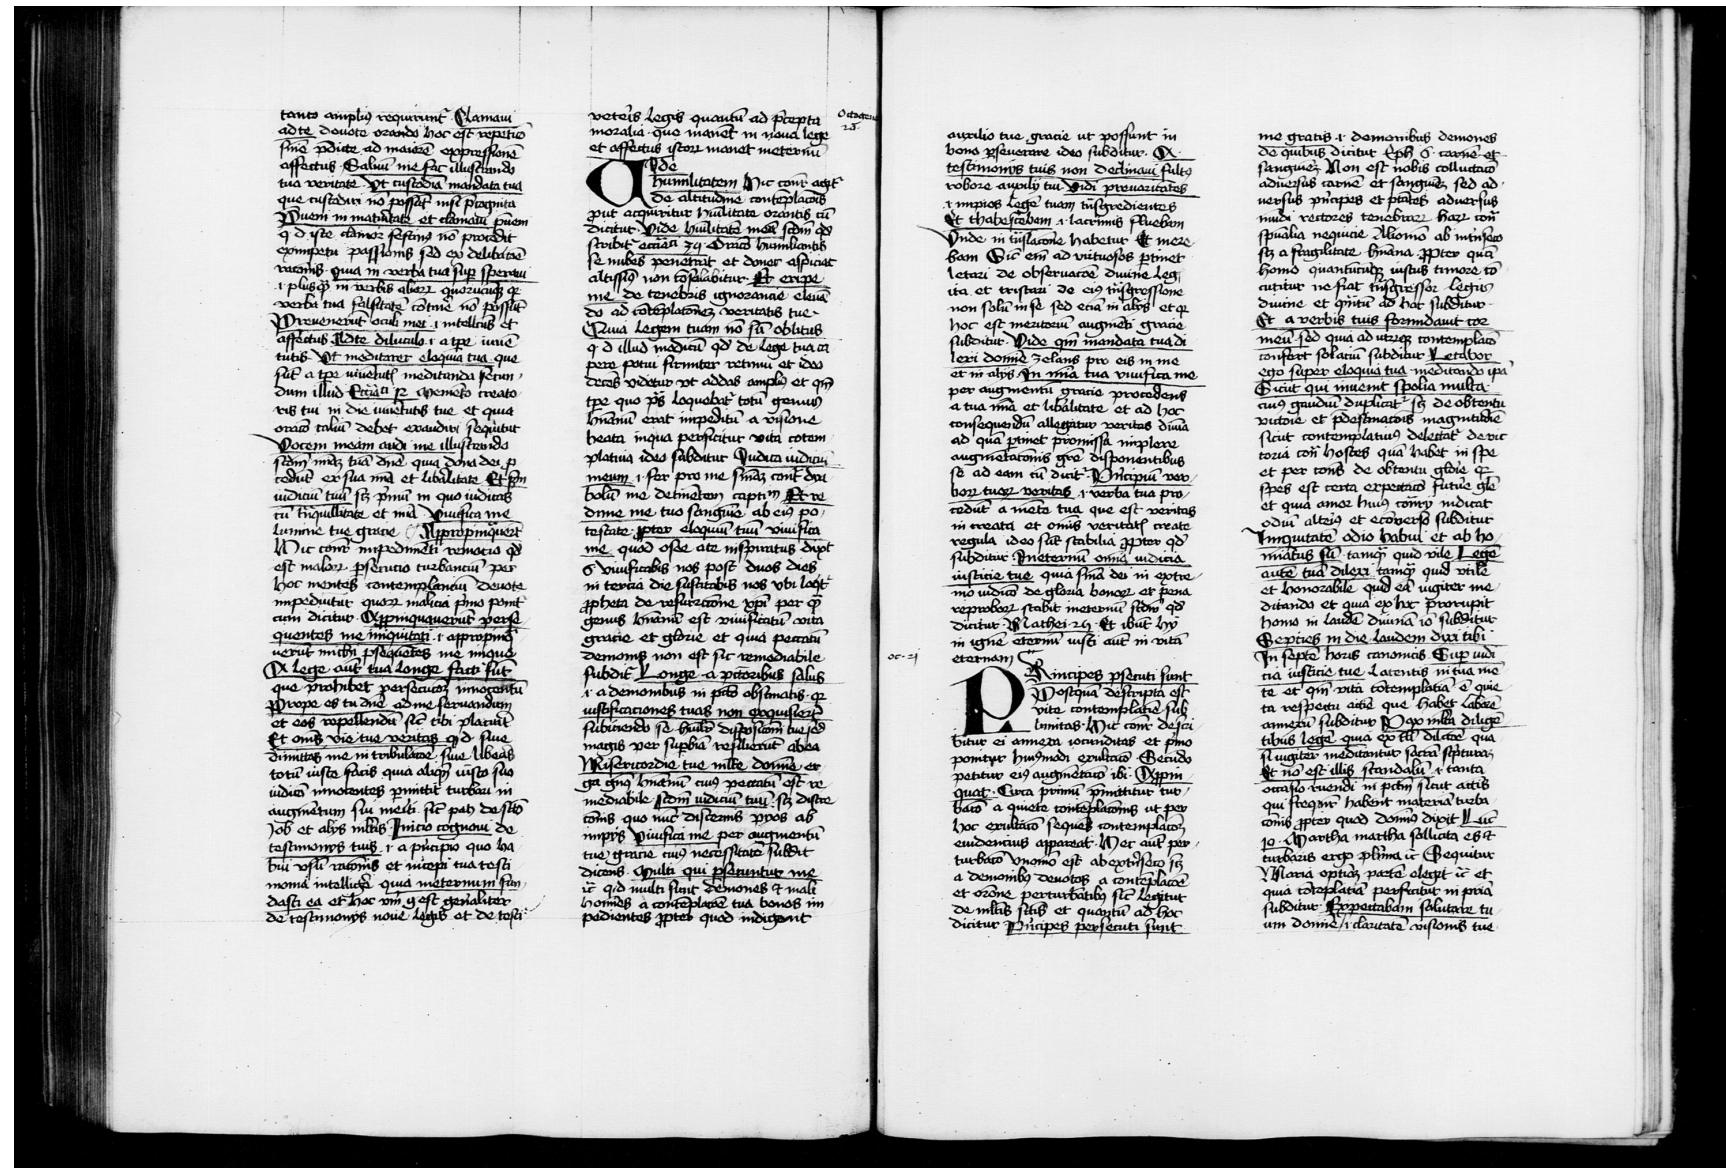 tanto ampliꝯ requirunt᷑ · Clamaui
ad te deuote orando hoc est repeticō
affectus · Saluū me fac illustrando
tua veritate · Vt custodiā mandata tua
que custodiri nō possūt nisi
Pueni in maturitate et clamaui
q d iste clamor nō procedit
passionis sed ex deliberatōe
racōnis · quia in verba tua sup speraui
verba tua falsitatē nō possūt
Preuenerūt oculi mei · i · intellctus et
affectus Ad te diluculo · i · a tpe iuuē
tutis · Vt meditarer eloquia tua que
sūt a tpe meditanda secun
dum illud Eccīaci 12 Memēto creato
ris tui in die iuuētutis tue et quia
oracō taliū debet exaudiri sequitur
Vocem meam audi me illustrando
scdm mīaz tuā dn̄e quia dona dei p
cedūt ex sua mīa et libalitate Et scdm
iudiciū tuū sz pn̄m in quo iudicas
cū tᷓnquillitate et mīa · Viuifica me
lumine tue gracie · Appropinquauert
Hic con̄r impedimēti remocio qd
est malorꝝ persecucio turbancium per
hoc mentes contemplanciū deuote
impediūtur quorꝝ malicia pͥmo ponit᷑
cum dicitur · Appinquauerūt perse
quentes me iniquitati · i · appropinq̄
uerūt michi psequētes me inique
A lege aut tua longe facti sūt
que prohibet persecucōem innocentū
Prope es tu dn̄e ad me seruandum
et eos repellendū sic tibi placuit
Et om̄s vie tue veritas q d siue
dimittas me in tribulacōe siue liberas
totū iuste facis quia aliqn̄ iusto suo
iudicio innocentes pmittit turbari in
augmentum sui meriti sic patꝫ de scō
Job et alijs ml̄tis · Inicio cognoui de
testimonijs tuis · i · a principio quo ha
bui vsū racōnis et incepi tua testi
monia intelliḡe quia ineternum fun
dasti ea et hoc verū ꝗ est genaliter
de testimonijs noue legis et de testi
veteris legis quantū ad pͥcepta
moralia que manēt in noua lege
et affectus istorꝝ manet ineternū
Octogena
Vide
humilitatem Hic con̄r agit᷑
de altitudine contēplacōis
put acquiritur huīlitate orantis cū
dicitur · Vide huīlitatē meā scdm qd
scribit eccīaci 35 · Oracō humiliantis
se nubes penetrat et donec aspiciat
altissimꝯ non cōsolabitur · Et eripe
me de tenebris ignorancie eleuā
do ad cōtēplacōnez veritatis tue
Quia legem tuam nō sū oblitus
q d illud modicū qd de lege tua ca
pere potui firmiter retinui et ideo
decēs videtur vt addas ampliꝯ et qm̄
tpe quo ps loquebat᷑ totū genus
hn̄anū erat impeditū a visione
beata in qua perficitur vita cotem
platiua ideo subditur Iudica iudiciū
meum · i · fer pro me sn̄iaz cont᷑ dya
bolum me detinētem captiuū Et re
dime me tuo sanguine ab eiꝯ po
testate ꝓpter eloquiū tuū viuifica
me quod osee ate inspiratus dixit
6 viuificabis nos post duos dies
in tercia die suscitabis nos vbi loqit᷑
ꝓpheta de resurrcione xpī per quā
genus hn̄anū est viuificatū vita
gracie et glorie et quia peccatū
demonis non est sic remediabile
subdit᷑ Longe a pctoribus salus
· i · a demonibus in pctō obstinatis qr
iustificaciones tuas non exquisierūt
subiciendo se huīlr disposicōni tue sed
magis per supbiā resilierūt ab ea
Misericordie tue multe domine er
ga genꝯ hn̄anū cuiꝯ peccatū est re
mediabile scdm iudiciū tuū sz discre
cōnis quo nūc discernis pios ab
impijs · Viuifica me per augmentū
tue gracie cuiꝯ necessitatē subdit
dicens · Multi qui psecuntur me
ic̄ q d multi sunt demones et mali
homīes a contēplacōe tua bonos im
pedientes ꝓpter quod indigent
auxilio tue gracie ut possunt in
bono pseuerare ideo subditur · A
testimonijs tuis non declinaui fultꝯ
robore auxilij tui · Vidi preuaricātes
· i · impios legē tuam tᷓnsgredientes
Et thabescebam · i · lacrimis fluebam
Vnde in tᷓnslacōne habetur Et mere
bam Sic em̄ ad virtuosos ptinet
letari de obseruacōe diuine leg
is ita et tristari de eiꝯ tᷓnsgressione
non solū in se sed eciā in alijs et qr
hoc est meritoriū augmēti gracie
subditur · Vide qm̄ mandata tua di
lexi domine zelans pro eis in me
et in alijs · In mīa tua viuifica me
per augmentū gracie procedens
a tua mīa et libalitate et ad hoc
consequendū allegatur veritas diuīa
ad quā ptinet promissa implere
augmētacōnis gre disponentibus
se ad eam cū dicit᷑ · Principiū ver
borꝝ tuorꝝ veritas · i · verba tua pro
cedūt a mēte tua que est veritas
in creata et om̄is veritatis create
regula ideo sūt stabilia ꝓpter qd
subditur In eternū om̄ia iudicia
iusticie tue quia sn̄ia dei in extre
mo iudicō de gloria bonorꝝ et pena
reproborꝝ stabit ineternū scdm qd
dicitur Mathei 25 · Et ibūt hij
in ignē eternū iusti aut in vitā
eternam
oc · 21
Principes psecuti sunt
Postquā descripta est
vite contemplatiue sub
limitas · Hic con̄r descri
bitur ei annexa iocunditas et pͥmo
ponitur huiꝯmodi exultacō · Secūdo
petitur eiꝯ augmētacō ibi · Appin
quet · Circa primū pmittitur tur
bacō a quiete contēplacōnis ut per
hoc exultacō sequēs contemplacōz
euidencius appareat · Hec aut per
turbacō vno mō est ab extͥnseco sz
a demonibꝯ deuotos a contēplacōe
et orōne perturbātibꝯ sic legitur
de ml̄tis scīs et quantū ad hoc
dicitur Principes persecuti sunt
me gratis · i · demonibus demones
de quibus dicitur Eph 6 · carnē et
sanguinēz Non est nobis colluctacō
aduersus carnē et sanguinēz sed ad
uersus pncipes et ptātes aduersus
mūdi rectores tenebrarꝝ harꝝ con̄t
spūalia nequicie Alio mō ab intͥnseco
sz a fragilitate hn̄ana · ꝓpter quā
homo quantūcūqz iustus timore cō
cutitur ne fiat tᷓnsgressor legis
diuine et qn̄tū ad hoc subditur
Et a verbis tuis formidauit cor
meū sed quia ad utrūqz contemplacō
confert solaciū subditur Letabor
ego super eloquia tua meditando ipa
Sicut qui inuenit spolia multa
cuiꝯ gaudiū duplicat᷑ sz de obtentu
victorie et magnitudīe
sicut contemplatiuꝯ delectat᷑ de vic
toria con̄t hostes quā habet in spe
et per cons de obtentu glorie qr
spes est certa expectacō future glē
et quia amor huiꝯ contͣrij indicat
odiū alteriꝯ et ecōuerso subditur
Iniquitatē odio habui et ab ho
minatus sū tamqͣ quid vile Legē
autē tuā dilexi tamqͣ quid vtile
et honorabile quid eā iugiter me
ditando et quia ex hoc prorupit
homo in laudē diuinā iō subditur
Sepcies in die laudem dixi tibi
In septē horis canonicis Sup iudi
cia iusticie tue latentis in tua mē
te et qm̄ vita cōtemplatiua ē quie
ta respectu actiue que habet laborē
annexū subditur Pax multa diligē
tibus legē tuā quia ex tali dilcōe qua
si iugiter meditantur sacrā scripturaz
Et nō est illis scandalū · i · tanta
occasio ruendi in pctm̄ sicut actiis
qui frequent᷑ habent materiā turba
cōnis ꝓpter quod domīꝯ dixit Luc
10 · Martha martha sollicita es et
turbaris erga plima ic̄ Sequitur
Maria optimā partē elegit ic̄ et
quia cōtēplatiua perficitur in pria
subditur · Expectabam salutare tu
um domine · i · claritatē visionis tue